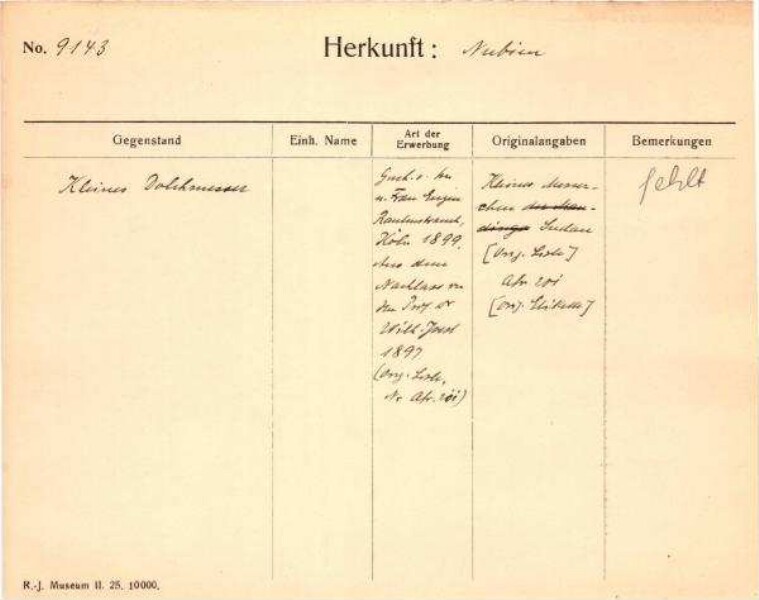 No. 9143 Herkunft: Nubien
Gegenstand Einh. Name Art der Erwerbung Originalangaben Bemerkungen
Kleines Dolchmesser
Gesch. v. Hn
u. Frau Eugen
Rautenstrauch,
Köln 1899.
Aus dem
Nachlass von
dem Prof Dr
Wilh. Joest
1897
(Orig. Liste,
Nr Afr. 201)
Kleines Messer-
chen der Man-
dingo Sudan
[Orig. Liste]
Afr 201
[Orig. Etikette]
fehlt
R.-J. Museum II. 25. 10000.